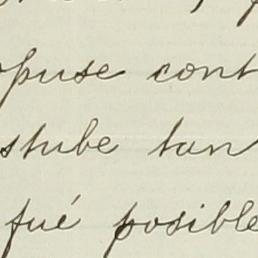 opuse cont
stube tan
fué posible